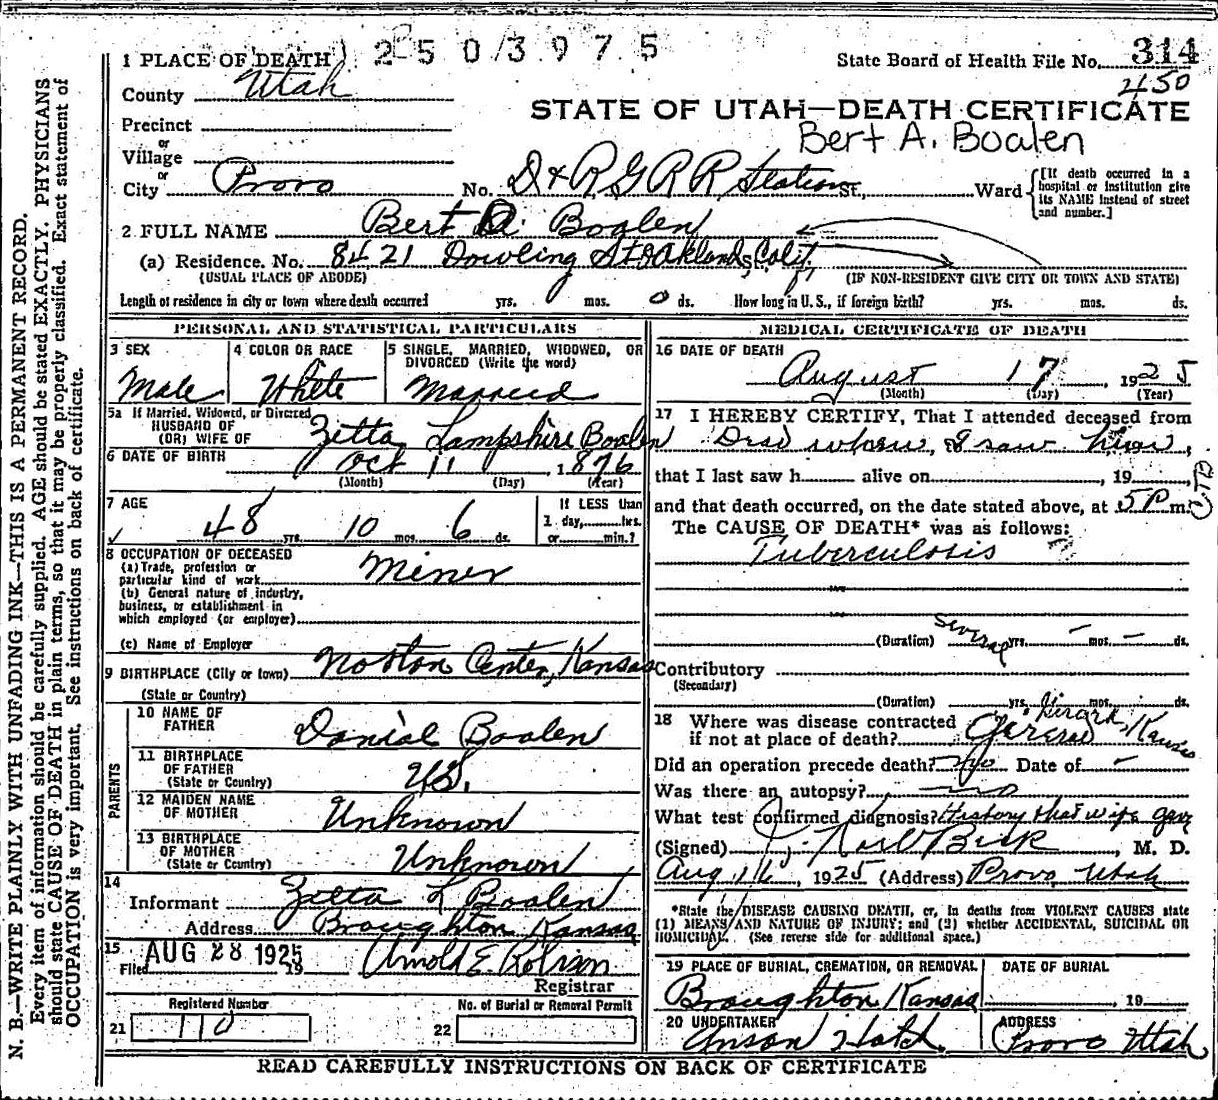 2503975
State Board of Health File No. 314
450
1 PLACE OF DEATH
County Utah
STATE OF UTAH—DEATH CERTIFICATE
Bert A. Boalen
Precinct
or
Village
or
City Provo No. D & R G R R Station St., Ward
[If death occurred in a hospital or institution give its NAME instead of street and number.]
2 FULL NAME Bert A. Boalen
(a) Residence. No. 8421 Dowling St Oakland, St., Calif.
(USUAL PLACE OF ABODE) (IF NON-RESIDENT GIVE CITY OR TOWN AND STATE)
Length of residence in city or town where death occurred yrs. 0 mos. 0 ds. How long in U. S., if foreign birth? yrs. mos. ds.
PERSONAL AND STATISTICAL PARTICULARS
3 SEX
Male
4 COLOR OR RACE
White
5 SINGLE, MARRIED, WIDOWED, OR DIVORCED (Write the word)
Married
5a If Married, Widowed, or Divorced
HUSBAND OF
(OR) WIFE OF Zetta Lampshire Boalen
6 DATE OF BIRTH Oct 11, 1876
(Month) (Day) (Year)
7 AGE
48 yrs. 10 mos. 6 ds.
If LESS than
1 day, hrs.
or min.?
8 OCCUPATION OF DECEASED
(a) Trade, profession or
particular kind of work Miner
(b) General nature of industry,
business, or establishment in
which employed (or employer)
(c) Name of Employer
9 BIRTHPLACE (City or town) Norton Center, Kansas
(State or Country)
PARENTS
10 NAME OF
FATHER Danial Boalen
11 BIRTHPLACE
OF FATHER
(State or Country) U.S.
12 MAIDEN NAME
OF MOTHER Unknown
13 BIRTHPLACE
OF MOTHER
(State or Country) Unknown
14
Informant Zetta L Boalen
Address Broughton Kansas
15
Filed AUG 28 1925 19 Arnold E. Robison
Registrar
Registered Number
21 110
No. of Burial or Removal Permit
22
MEDICAL CERTIFICATE OF DEATH
16 DATE OF DEATH
August 17, 1925
(Month) (Day) (Year)
17 I HEREBY CERTIFY, That I attended deceased from
Dead when I saw him,
that I last saw h alive on , 19 ,
and that death occurred, on the date stated above, at 5 P m.
The CAUSE OF DEATH* was as follows:
Tuberculosis
(Duration) several yrs. – mos. – ds.
Contributory
(Secondary)
(Duration) yrs. mos. ds.
18 Where was disease contracted
if not at place of death? Girard, Kansas
Did an operation precede death? No Date of –
Was there an autopsy? no
What test confirmed diagnosis? History that wife gave
(Signed) J. Karl Beck, M. D.
Aug 1, 1925 (Address) Provo, Utah
*State the DISEASE CAUSING DEATH, or, in deaths from VIOLENT CAUSES state
(1) MEANS AND NATURE OF INJURY; and (2) whether ACCIDENTAL, SUICIDAL OR
HOMICIDAL. (See reverse side for additional space.)
19 PLACE OF BURIAL, CREMATION, OR REMOVAL
Broughton, Kansas
DATE OF BURIAL
, 19
20 UNDERTAKER
Anson Hatch.
ADDRESS
Provo Utah
READ CAREFULLY INSTRUCTIONS ON BACK OF CERTIFICATE
N. B.—WRITE PLAINLY WITH UNFADING INK—THIS IS A PERMANENT RECORD.
Every item of information should be carefully supplied. AGE should be stated EXACTLY. PHYSICIANS
should state CAUSE OF DEATH in plain terms, so that it may be properly classified. Exact statement of
OCCUPATION is very important. See instructions on back of certificate.